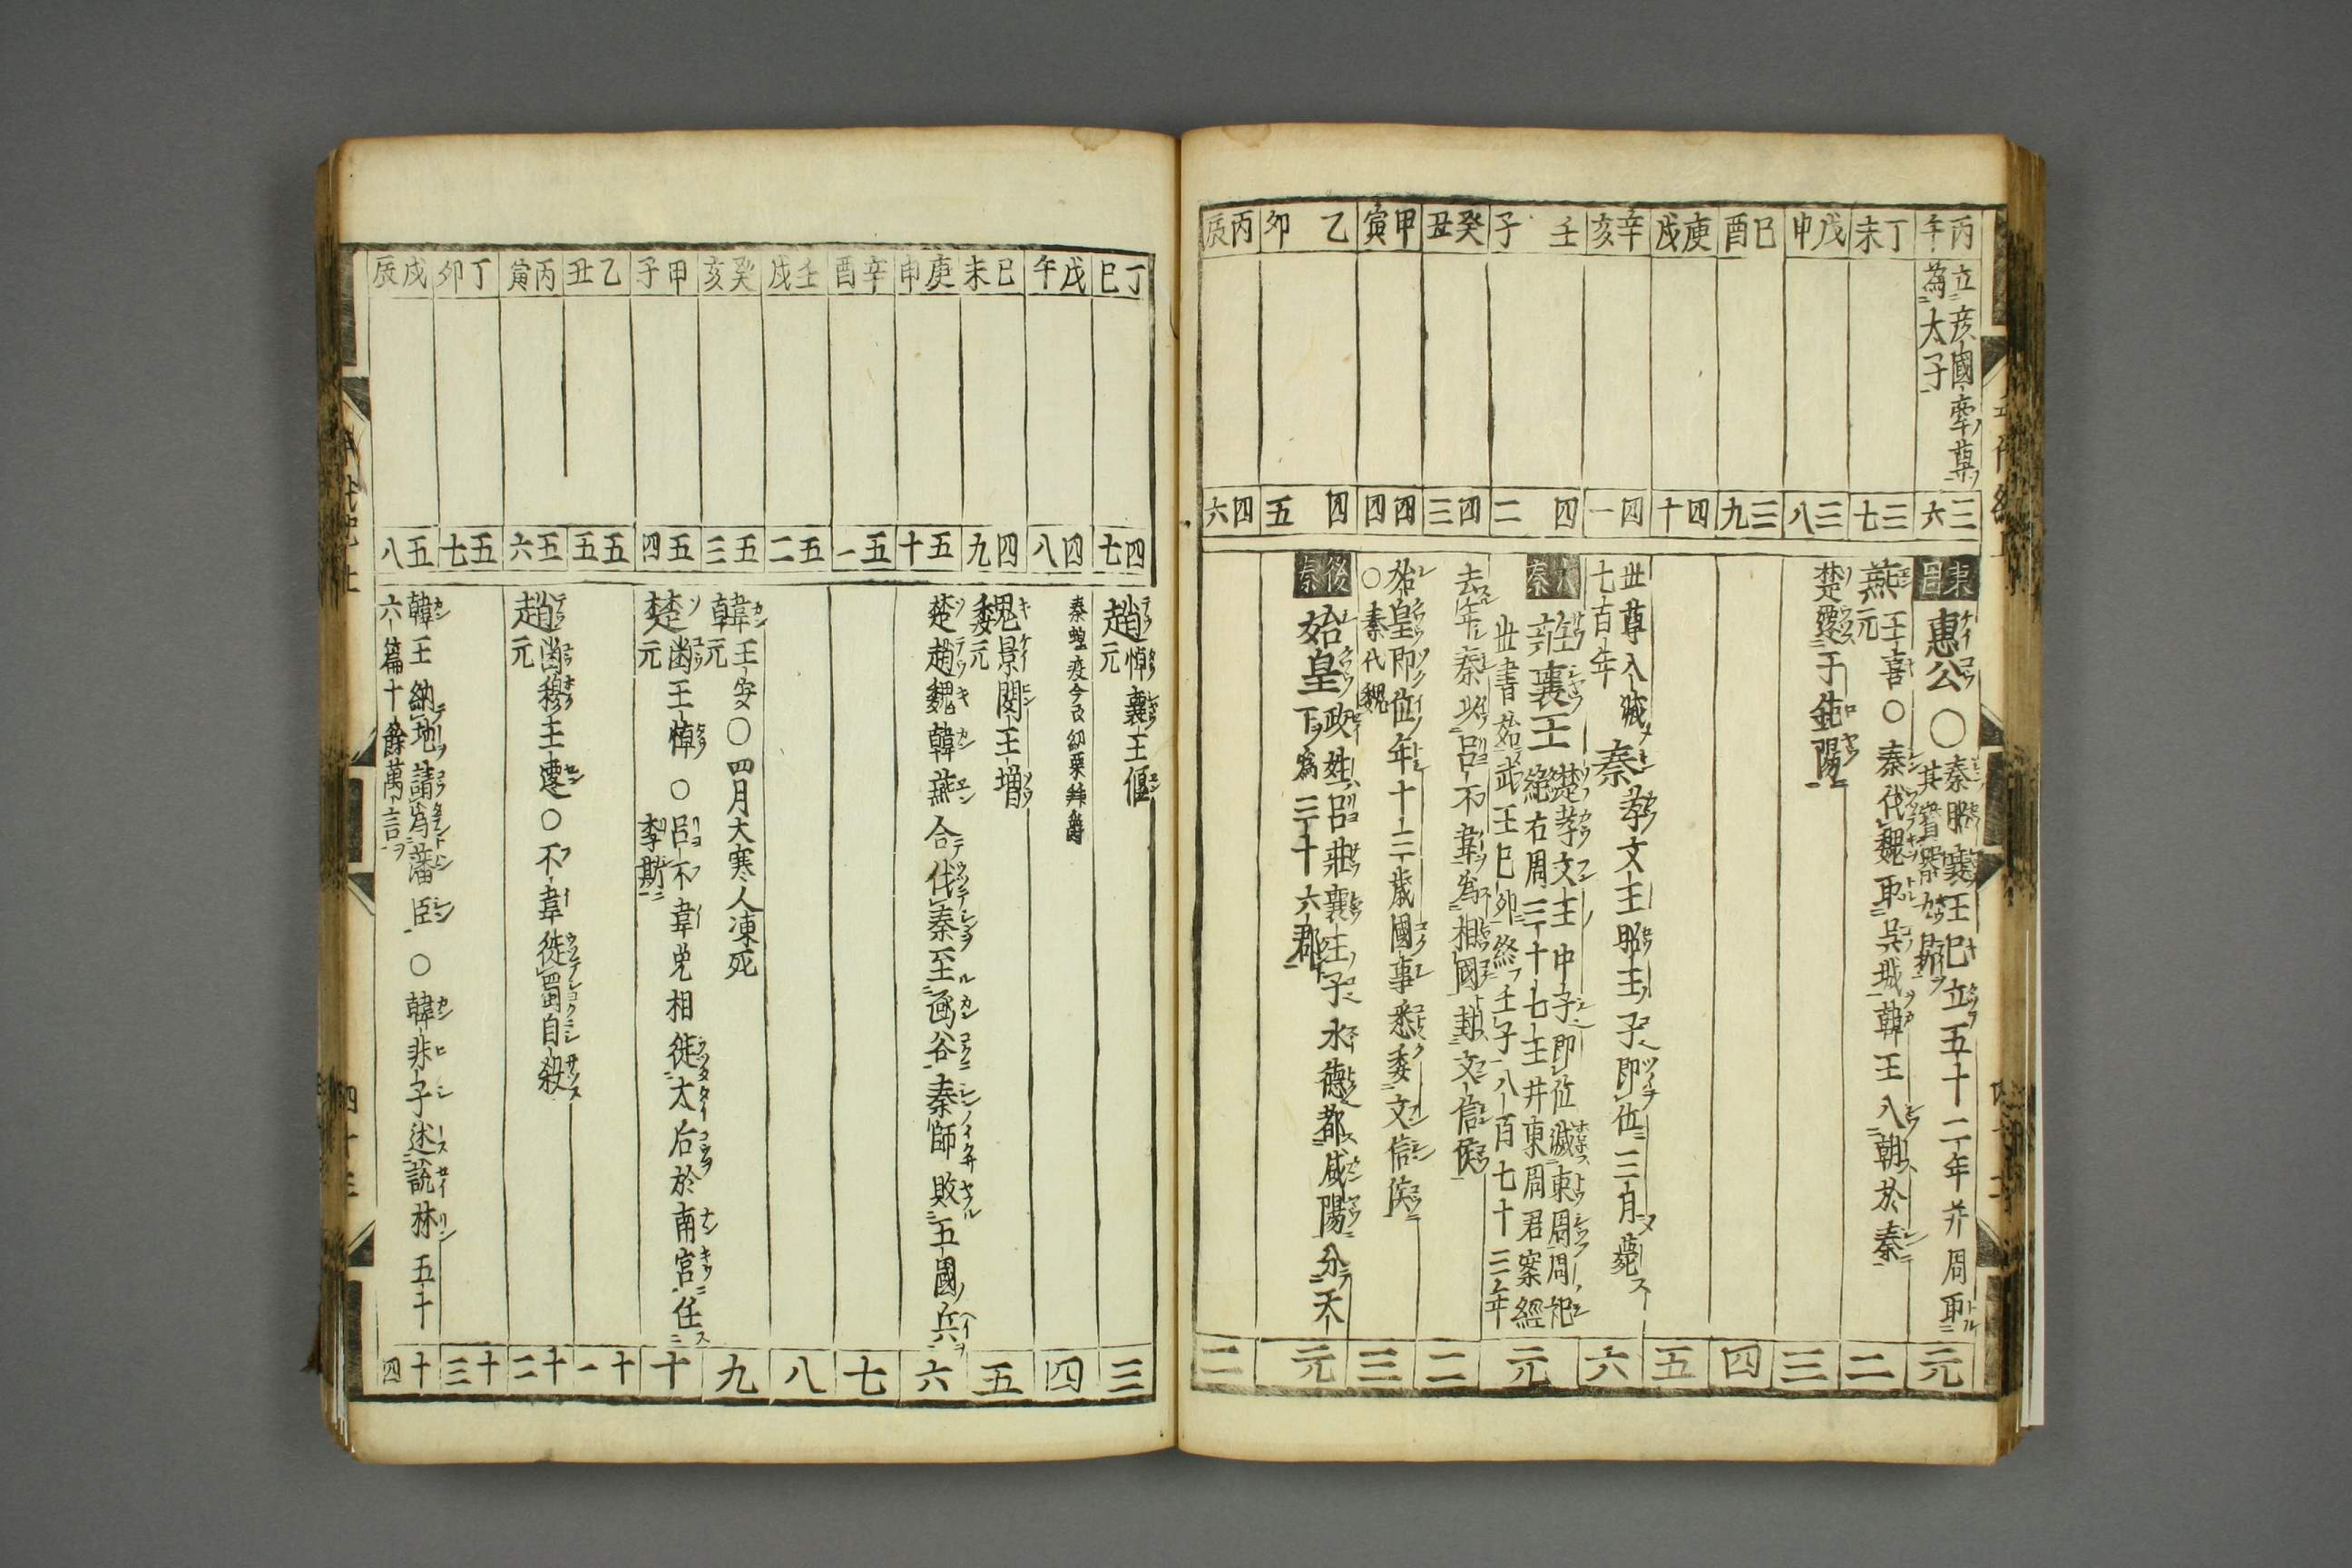 丙午
立彦國牽尊
為太子
三六
東周
惠公〇秦昭襄王巳立五十二年并周取
其寶器九鼎
元
丁未
三七
燕王喜〇秦伐魏取呉城韓王入朝於秦
元
二
戊申
三八
楚遷于鉅陽
三
己酉
三九
四
庚戌
四十
五
辛亥
四一
世尊入滅
七百年
秦孝文王昭王子即位三月薨
六
壬子
四二
秦
莊襄王楚孝文王中子即位滅東周周祀
絶右周三十七主并東周君案經
世書始武王巳卯終壬子八百七十三年
元
癸丑
四三
去年秦以呂不韋為相國封文信侯
二
甲寅
四四
始皇即位年十三歳國事悉委文信侯
〇秦代魏
三
乙卯
四五
後秦
始皇政姓呂莊襄王子水德都咸陽分天
下為三十六郡
元
丙辰
四六
二
丁巳
四七
趙悼襄王偃
元
三
戊午
四八
秦蝗疫令民納粟拜爵
四
己未
四九
魏景閔王増
元
五
庚申
五十
楚趙魏韓燕合伐秦至函谷秦師敗五國兵
六
辛酉
五一
七
壬戌
五二
八
癸亥
五三
韓王安〇四月大寒人凍死
元
九
甲子
五四
楚幽王悼〇呂不韋免相徙太后於南宮任
元
李斯
十
乙丑
五五
十一
丙寅
五六
趙幽穆王遷〇不韋徙蜀自殺
元
十二
丁卯
五七
十三
戊辰
五八
韓王納地請為藩臣〇韓非子述説林五十
六篇十餘萬言
十四
四十三